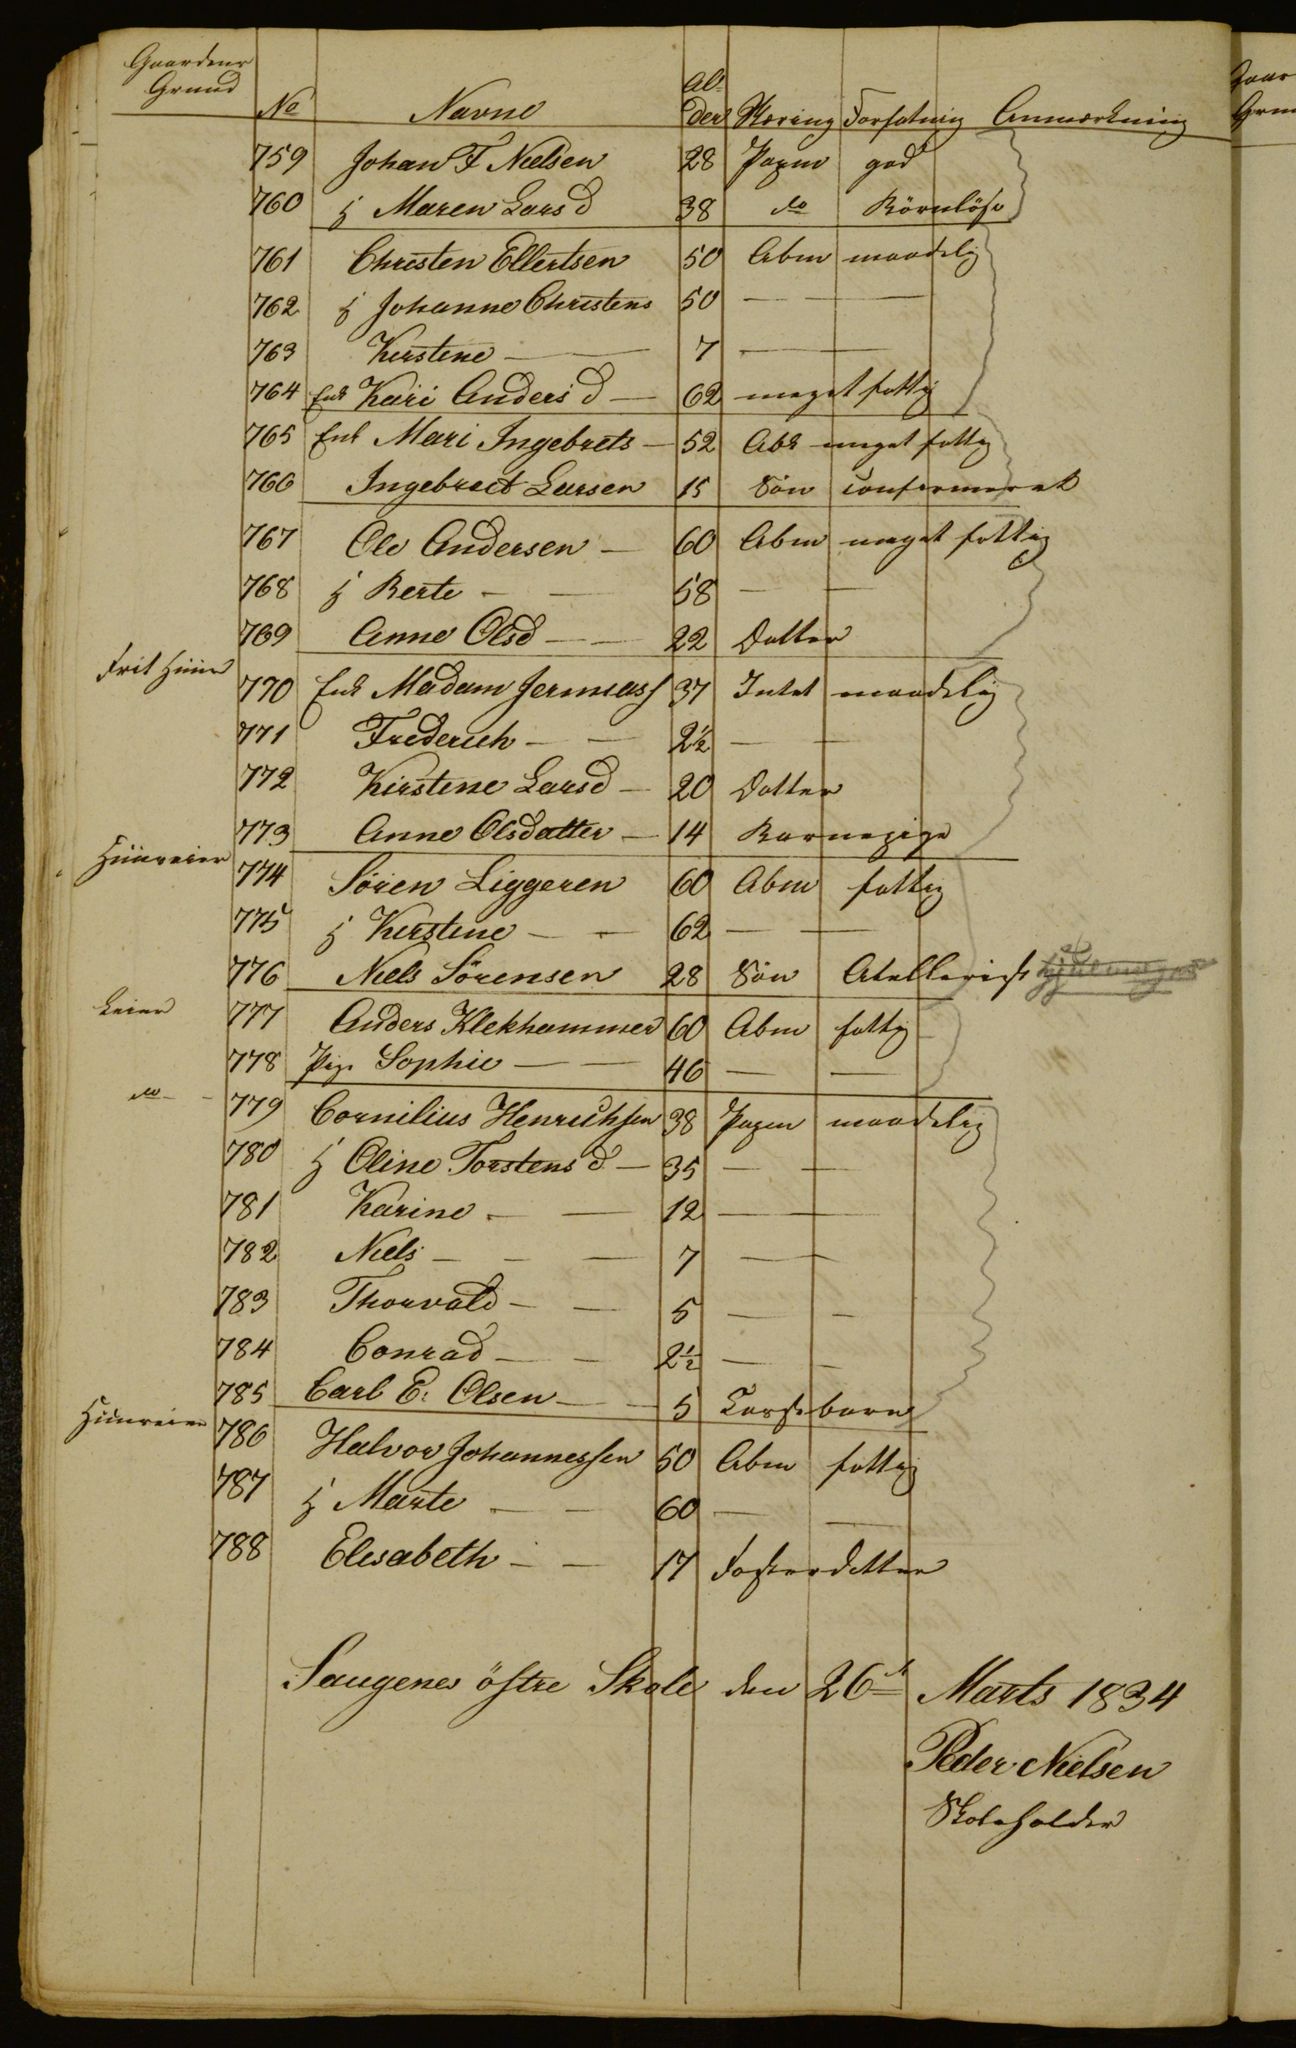 Gaardens Grund No Navne Alder Næring Forfatning Anmærkning
759 Johan F Nielsen 28 god
760 H Maren Lars d 38 do Börnlöse
761 Christen Ellertsen 50 Abm maadelig
762 H Johanne Christens 50 — —
763 Kirstene — 7 — —
764 Enk Kari Anders d — 62 meget fattig
765 Enk Mari Ingebrets — 52 meget fattig
766 Ingebrect Larsen 15 Sön confermeret
767 Ole Andersen — 60 Abm meget fattig
768 H Berte — — 58 — —
769 Anne Olsd — — 22 Datter
Frit Huus 770 Enk Madam 37 Intet maadelig
771 Frederich — — 2½ — —
772 Kirstene Larsd — 20 Datter
773 Anne Olsdatter — 14 Barnepige
Huuseier 774 Sören Liggeren 60 Abm fattig
775 H Kirstene — — 62 — —
776 Niels Sörensen 28 Sön
Leier 777 Anders Klekhammer 60 Abm fattig
778 Pig. Sophie — — 46 — —
do — 779 Cornilius Henrichsen 38 maadelig
780 H Oline Torstens d — 35 — —
781 Karine — — 12 — —
782 Niels — — — 7 — —
783 Thorvald — — 5 — —
784 Conrad — — 2½ — —
785 Carl E: Olsen — — 5
Huuseier 786 Halvor Johannessen 50 Abm fattig
787 H Marte — — 60 — —
788 Elisabeth — — 17 Fosterdatter
Saugenes östre Skole den 26 Marts 1834
Peder Nielsen
Skoleholder